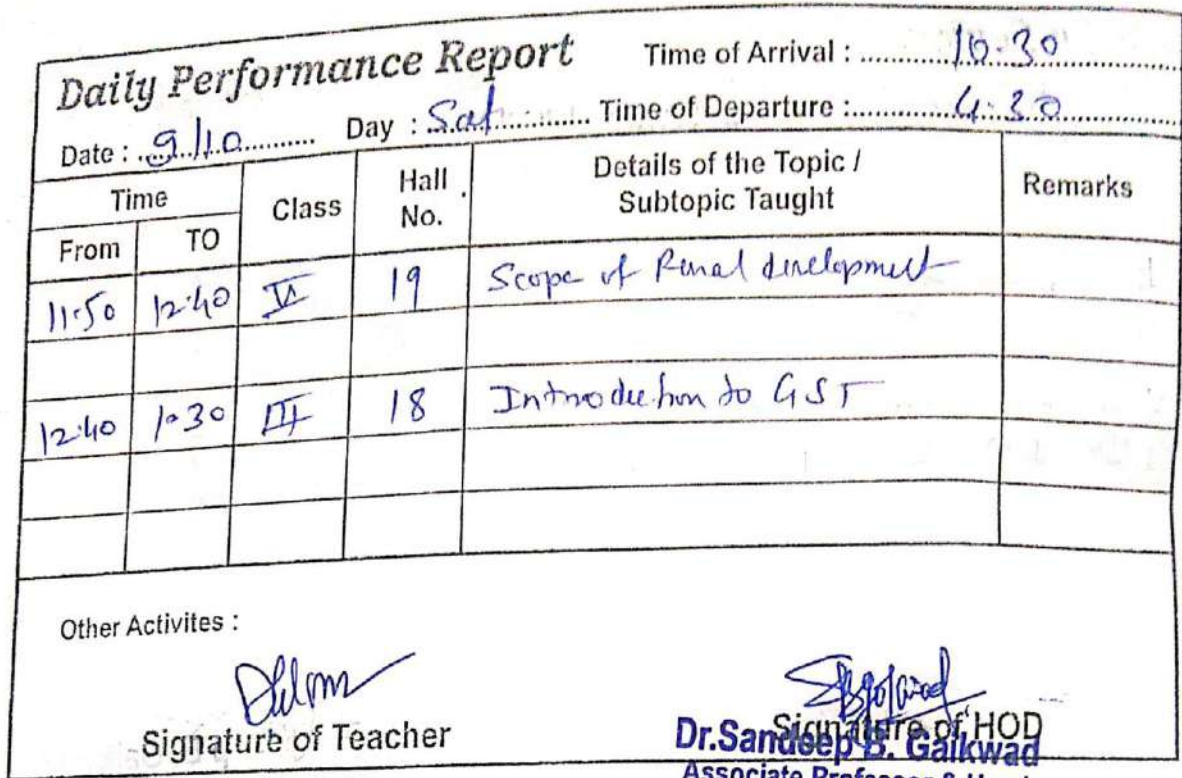 Daily Performance Report
Time of Arrival : 10.30
Date : 9/10 Day : Sat Time of Departure : 4.30
Time Class Hall No. Details of the Topic / Subtopic Taught Remarks
From TO
11.50 12.40 19 Scope of Rural development
12.40 1.30 III 18 Introduction to GST
Other Activites :
Signature of Teacher
Signature of HOD
Dr.Sandeep B. Gaikwad
Associate Professor &